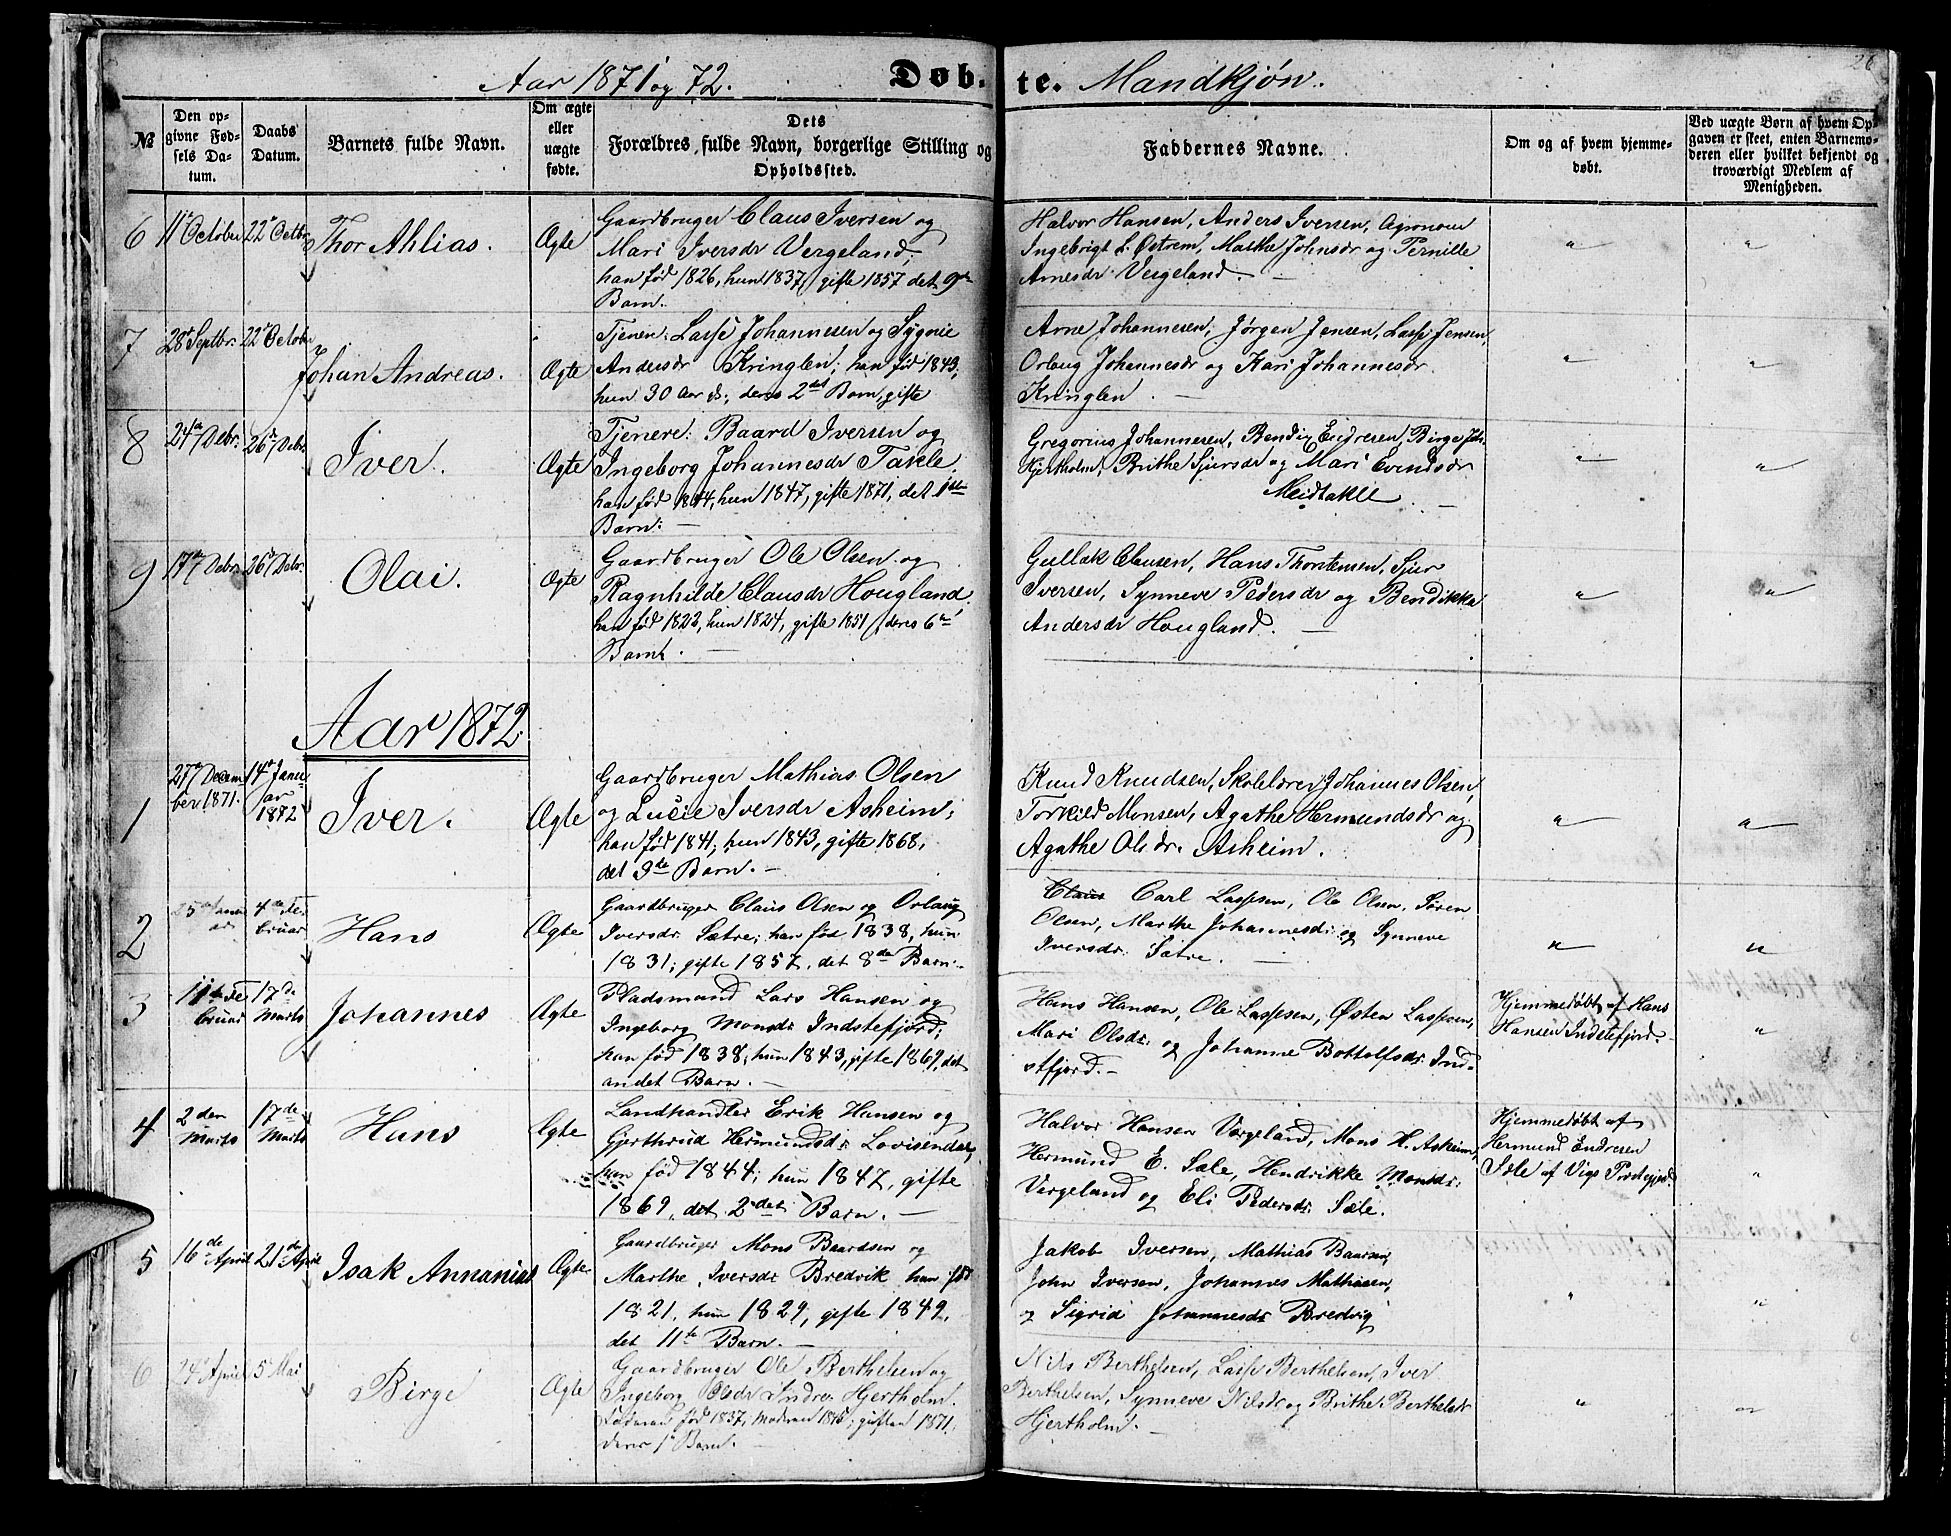 26
Aar 1871 og 72.
Døb-te. Mandkjøn.
№
Den opgivne Fødsels Datum.
Daabs Datum.
Barnets fulde Navn.
Om ægte eller uægte fødte.
Dets Forældres fulde Navn, borgerlige Stilling og Opholdssted.
Faddernes Navne.
Om og af hvem hjemmedøbt.
Ved uægte Børn af hvem Opgaven er skeet, enten Barnemoderen eller hvilket bekjendt og troværdigt Medlem af Menigheden.
6 11te October 22de Octbr. Thor Ahlias. Ægte
Gaardbruger Claus Iversen og
Mari Iversdr Vergeland.
han født 1826, hun 1837, gifte 1857 det 9de
Barn.
Halvor Hansen, Anders Iversen, Agronom
Ingebrigt L. Østrem, Marthe Johnsdr og Pernille
Arnesdr Vergeland. —
7 28de Septbr. 22de October Johan Andreas. Ægte
Tjener: Lasse Johannesen og Sygnie
Andersdr Kringlen; han fød 1843,
hun 30 Aar d., deres 2det Barn, gifte
Arne Johannesen, Jørgen Jensen, Lasse Jensen
Orlaug Johannesdr og Kari Johannesdr.
Kringlen. —
8 24de Debr. 26de Debr. Iver. Ægte
Tjenere: Baard Iversen og
Ingeborg Johannesdr Takle.
han fød 1844, hun 1847, gifte 1871, det 1ste
Barn: —
Gregorius Johannesen, Bendix Endresen, Birge Joh.
Hjertholm, Brithe Sjursdr og Mari Evindsdr
Meidtakle —
9 17de Debr. 26de Debr. Olai. Ægte
Gaardbruger Ole Olsen og
Ragnhilde Clausdr Hougland.
han fød 1822, hun 1824, gifte 1851, deres 6te
Barn. —
Gullak Clausen, Hans Thorstensen, Sjur
Iversen, Synneve Pedersdr og Bendikka
Andersdr Hougland. —
Aar 1872
1 27de December 1871. 14de Januar 1872 Iver. Ægte
Gaardbruger Mathias Olsen
og Lucie Iversdr Asheim;
han fød 1841, hun 1843, gifte 1868,
det 3de Barn. —
Knud Knudsen, Skolelærer Johannes Olsen,
Torkild Monsen, Agathe Hermundsdr og
Agathe Olsdr. Asheim.
2 25de Januar 4de Februar Hans Ægte
Gaardbruger Claus Olsen og Orlaug
Iversdr Sætre; han fød 1838, hun
1831; gifte 1857, det 8de Barn. —
Claus Carl Lassesen, Ole Olsen, Søren
Olsen, Marthe Johannesdr: og Synneve
Iversdr. Sætre. —
3 11te Februar 17de Marts Johannes Ægte
Pladsmand Lars Hansen og
Ingeborg Monsdr Indstefjord;
han fød 1838; hun 1843, gifte 1869, det
andet Barn. —
Hans Hansen, Ole Lassesen, Østen Lassesen,
Mari Olsdr. og Johanne Bottolfsdr. Ind-
stfjord. —
Hjemmedøbt af Hans
Hansen Indstefjord. —
4 2den Marts 17de Marts Hans Ægte
Landhandler Erik Hansen og
Gjerthrud Hermundsdr. Lovisendal,
han fød 1844; hun 1847, gifte
1869, det 2det Barn. —
Halvor Hansen Vergeland, Mons H. Asheim,
Hermund E. Sæle, Hendrikke Monsdr.
Vergeland og Eli Pedersdr. Sæle.
Hjemmedøbt af
Hermund Endresen
Sæle af Vigs Prstgjeld.
5 16de April 21de April Isak Annanias Ægte
Gaardbruger Mons Baardsen og
Marthe Iversdr Bredvik han fød
1821, hun 1829, gifte 1849,
det 11te Barn. —
Jakob Iversen, Mathias Baarsen,
John Iversen, Johannes Mathiasen,
og Sigrid Johannesdr Bredvig
6 24de April 5te Mai Birge Ægte
Gaardbruger Ole Berthelsen og
Ingeborg Olsdr Indre Hjertholm.
Faderen fød 1837, Modren 1845; giften 1871,
deres 1ste Barn. —
Nils Berthelsen, Lasse Berthelsen, Iver
Berthelsen, Synneve Nilsdr og Brithe Berthelsdr
Hjertholm. —